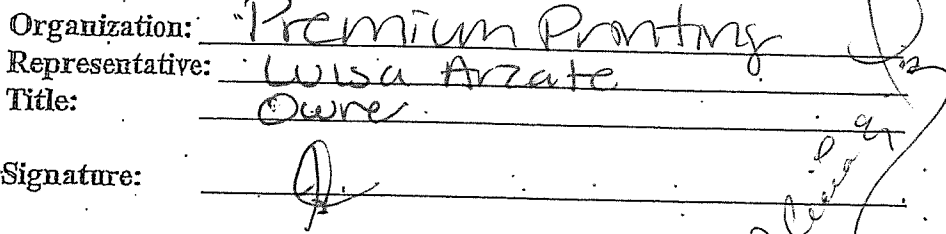 Organization: Premium Printing
Representative: Luisa Arzate
Title: Owner
Signature: